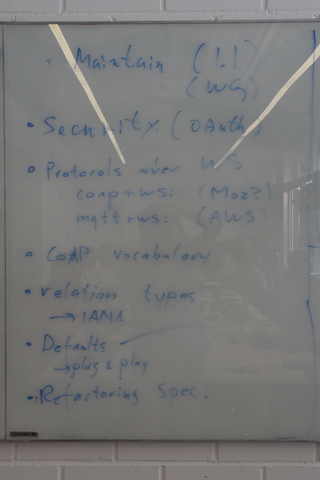 • Maintain (1.1)
(WG)
• Security (OAuth)
• Protocols over WS
coap+ws: (Moz?)
mqtt+ws: (AWS)
• CoAP vocabulary
• relation types
→ IANA
• Defaults
→ plug & play
• Refactoring Spec.